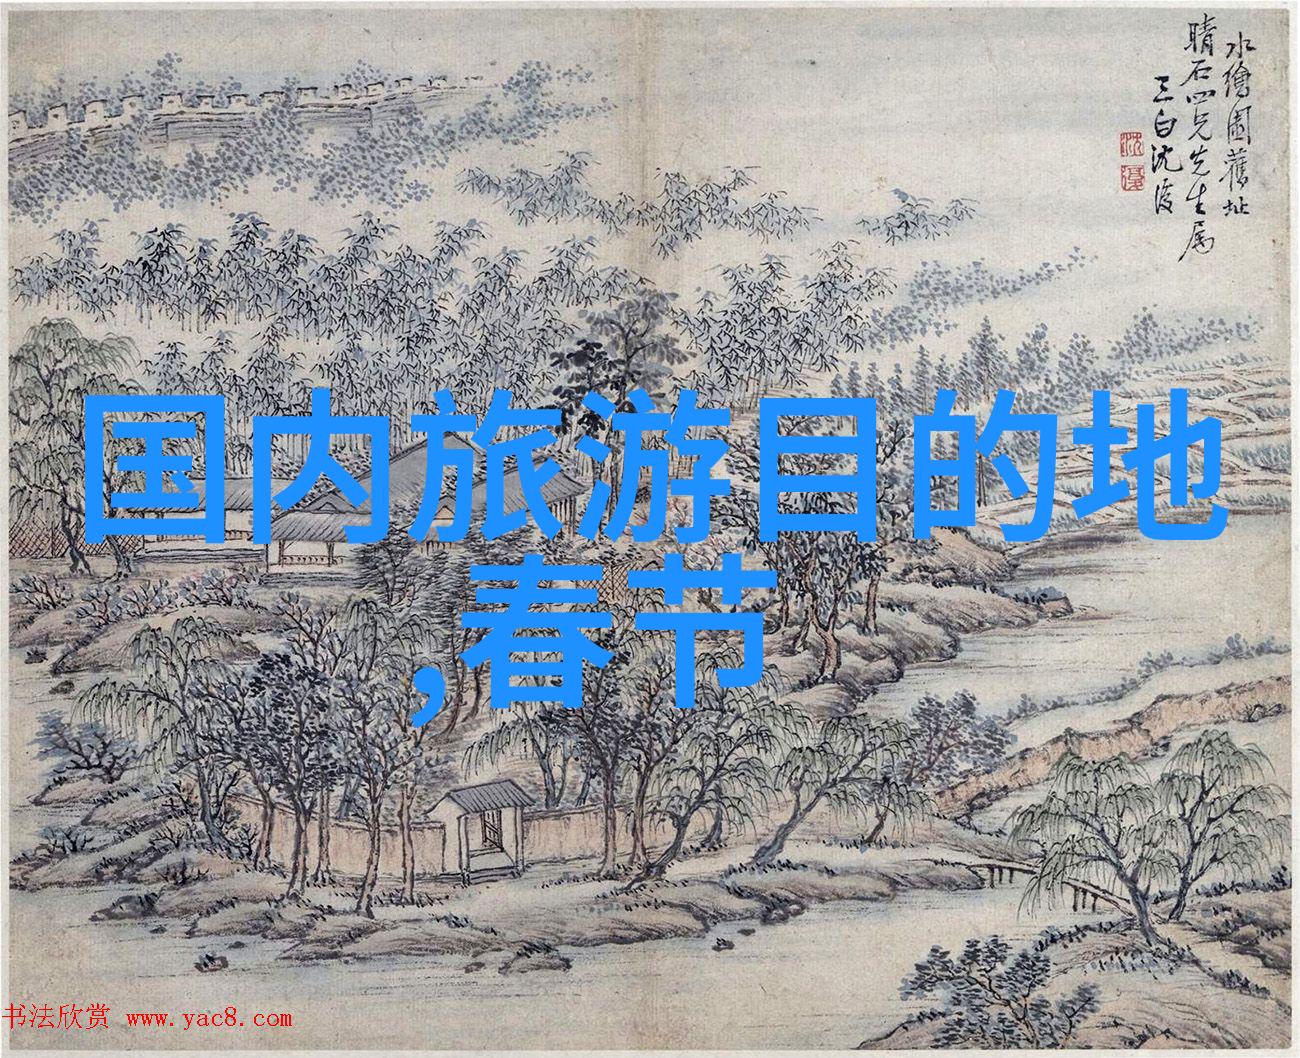 水繪園舊址
晴石四兄先生属
三白沈復
沈
復
国内旅游目的地
,春节
书法欣赏 www.yac8.com